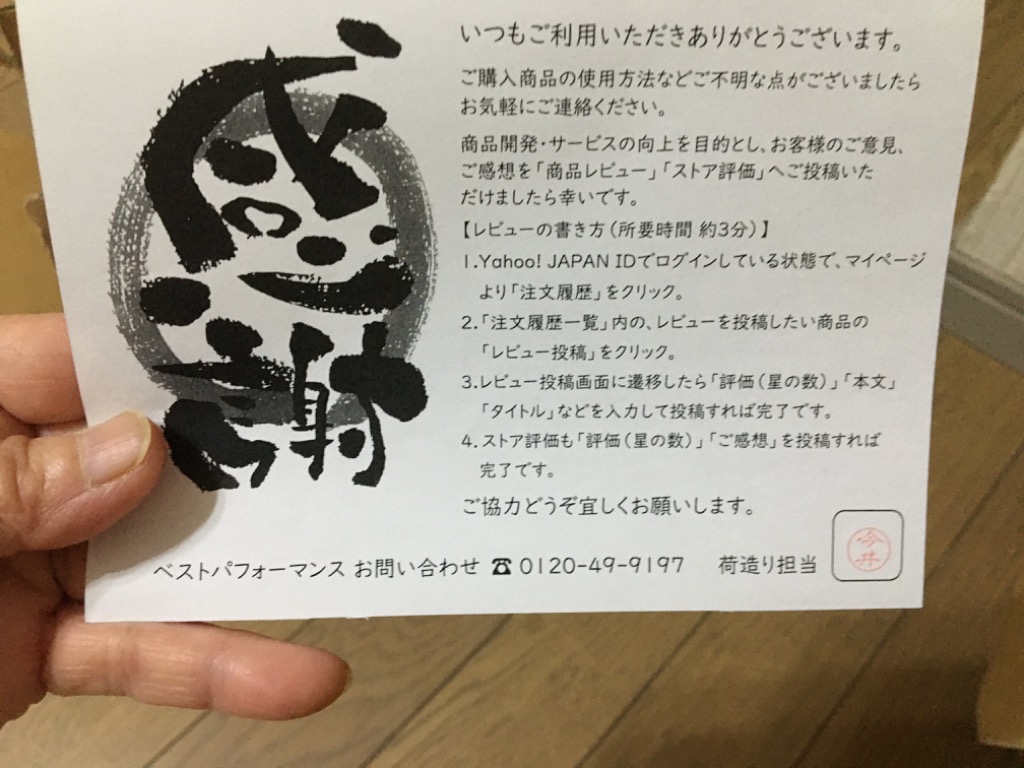 感謝
いつもご利用いただきありがとうございます。
ご購入商品の使用方法などご不明な点がございましたら
お気軽にご連絡ください。
商品開発・サービスの向上を目的とし、お客様のご意見、
ご感想を「商品レビュー」「ストア評価」へご投稿いた
だけましたら幸いです。
【レビューの書き方(所要時間 約3分)】
1.Yahoo! JAPAN IDでログインしている状態で、マイページ
より「注文履歴」をクリック。
2.「注文履歴一覧」内の、レビューを投稿したい商品の
「レビュー投稿」をクリック。
3.レビュー投稿画面に遷移したら「評価(星の数)」「本文」
「タイトル」などを入力して投稿すれば完了です。
4.ストア評価も「評価(星の数)」「ご感想」を投稿すれば
完了です。
ご協力どうぞ宜しくお願いします。
ベストパフォーマンス お問い合わせ ☎0120-49-9197 荷造り担当 今井